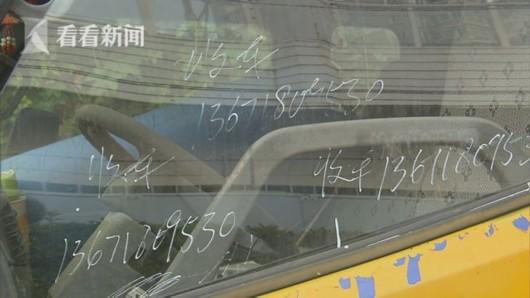 看看新闻
收车
13671809530
收车
收车 1367180953
13671809530